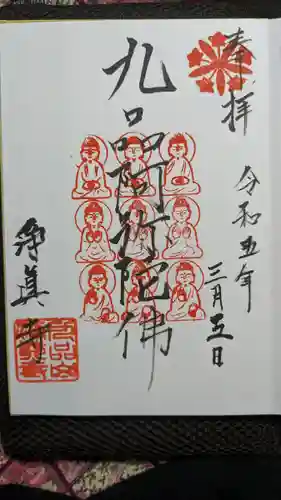 奉拝
令和五年
三月五日
九品阿弥陀佛
浄真寺